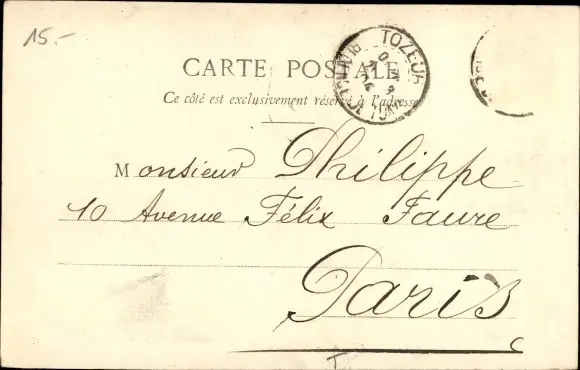 15.-
TOZEUR
CARTE POSTALE
Ce côté est exclusivement réservé à l'adresse
Monsieur Philippe
10 Avenue Félix Faure
Paris
T